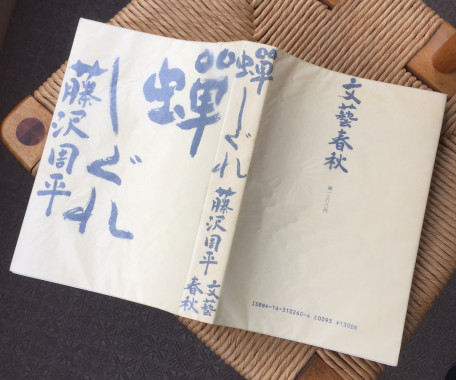 蟬しぐれ
藤沢周平
蟬しぐれ 藤沢周平 文藝春秋
文藝春秋
ISBN4-16-310260-4 C0093 ¥1300E